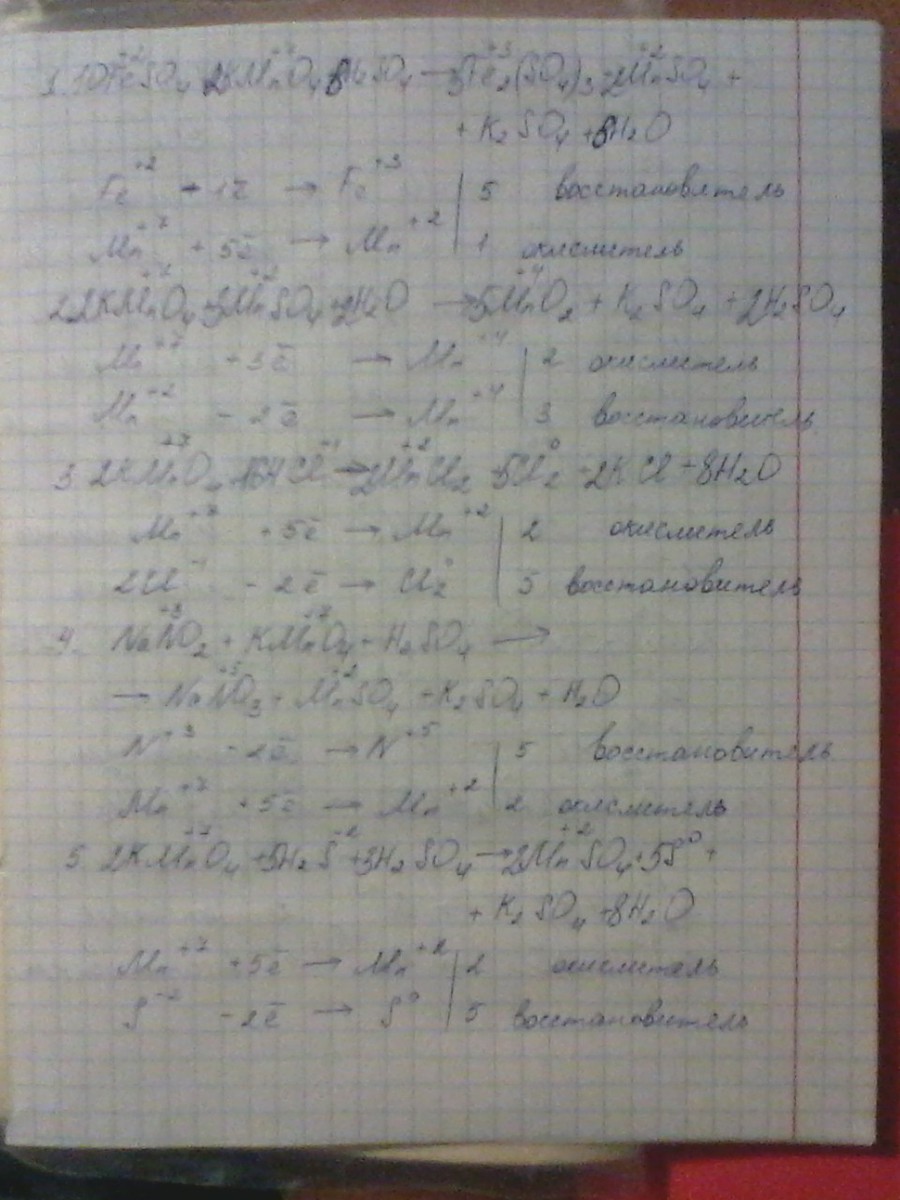 1. 10Fe⁺²SO₄ 2KMn⁺⁷O₄ 8H₂SO₄ → 5Fe₂⁺³(SO₄)₃ + 2Mn⁺²SO₄ +
+ K₂SO₄ + 8H₂O
Fe⁺² - 1ē → Fe⁺³ | 5 восстановитель
Mn⁺⁷ + 5ē → Mn⁺² | 1 окислитель
2. 2KMn⁺⁷O₄ + 3Mn⁺²SO₄ + 2H₂O → 5Mn⁺⁴O₂ + K₂SO₄ + 2H₂SO₄
Mn⁺⁷ + 3ē → Mn⁺⁴ | 2 окислитель
Mn⁺² - 2ē → Mn⁺⁴ | 3 восстановитель
3. 2KMn⁺⁷O₄ + 16HCl⁻¹ → 2Mn⁺²Cl₂ + 5Cl₂⁰ + 2KCl + 8H₂O
Mn⁺⁷ + 5ē → Mn⁺² | 2 окислитель
2Cl⁻¹ - 2ē → Cl₂⁰ | 5 восстановитель
4. NaN⁺³O₂ + KMn⁺⁷O₄ + H₂SO₄ →
→ NaN⁺⁵O₃ + Mn⁺²SO₄ + K₂SO₄ + H₂O
N⁺³ - 2ē → N⁺⁵ | 5 восстановитель
Mn⁺⁷ + 5ē → Mn⁺² | 2 окислитель
5. 2KMn⁺⁷O₄ + 5H₂S⁻² + 3H₂SO₄ → 2Mn⁺²SO₄ + 5S⁰ +
+ K₂SO₄ + 8H₂O
Mn⁺⁷ + 5ē → Mn⁺² | 2 окислитель
S⁻² - 2ē → S⁰ | 5 восстановитель